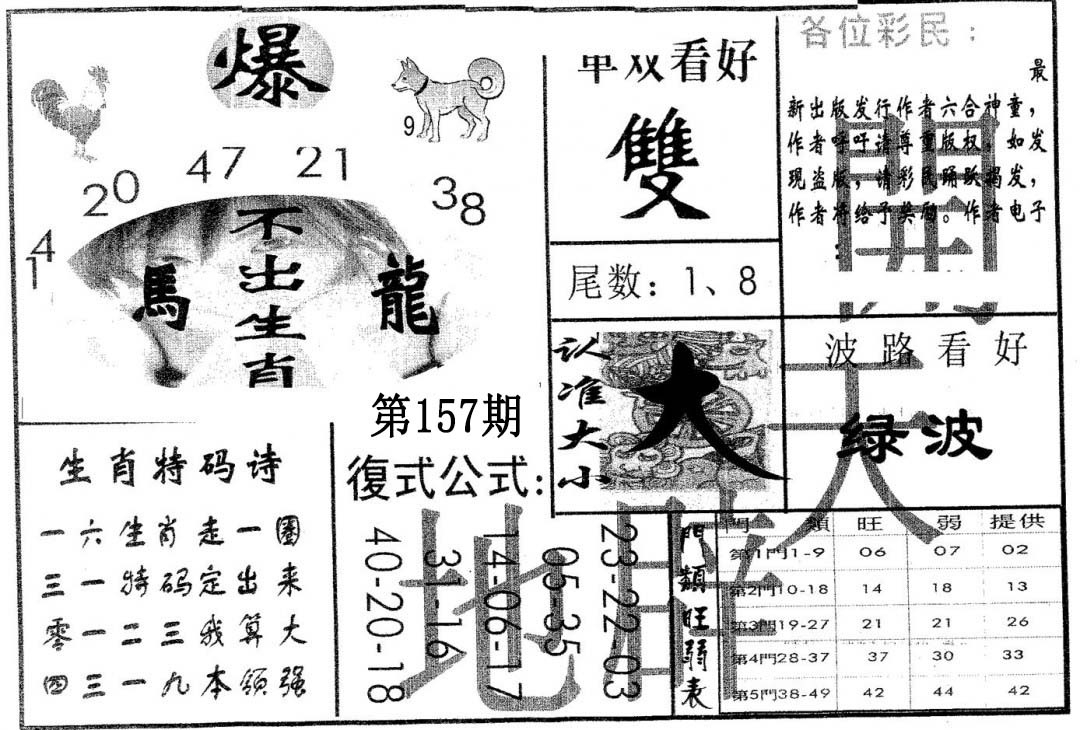 爆
9
14
20
47
21
38
不出生肖
馬
龍
单双看好
雙
尾数：1、8
各位彩民：
最
新出版发行作者六合神童，
作者呼吁请尊重版权。如发
现盗版，请彩民踊跃揭发，
作者将给予奖励。作者电子
：
認准大小
大
波路看好
绿波
第157期
生肖特码诗
一六生肖走一圈
三一特码定出来
零一二三我算大
四三一九本领强
復式公式:
23-22-03
05-35
14-06-17
31-16
40-20-18
門類旺弱表
門類 旺 弱 提供
第1門1-9 06 07 02
第2門10-18 14 18 13
第3門19-27 21 21 26
第4門28-37 37 30 33
第5門38-49 42 44 42